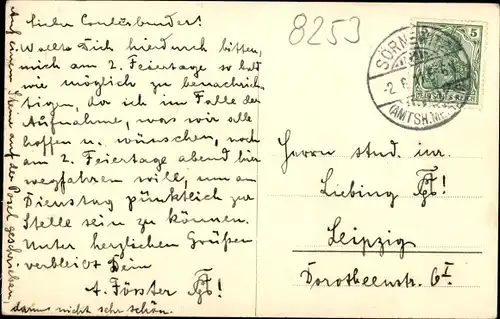 8253
Lieber Couleurbruder!
Wollte Dich hierdurch bitten,
mich am 2. Feiertage so bald
wie möglich zu benachrich-
tigen, da ich im Falle der
Aufnahme, was wir alle
hoffen u. wünschen, noch
am 2. Feiertage abend hin
wegfahren will, um am
Dienstag pünktlich zur
Stelle sein zu können.
Unter herzlichen Grüßen
verbleibt Dein
A. Förster
auf einem Steine auf der Bosel geschrieben,
darum nicht sehr schön.
SÖRNEWITZ
(AMTSH. ME
5
DEUTSCHES REICH
Herrn stud. iur.
Liebing
Leipzig
Dorotheenstr. 6 I